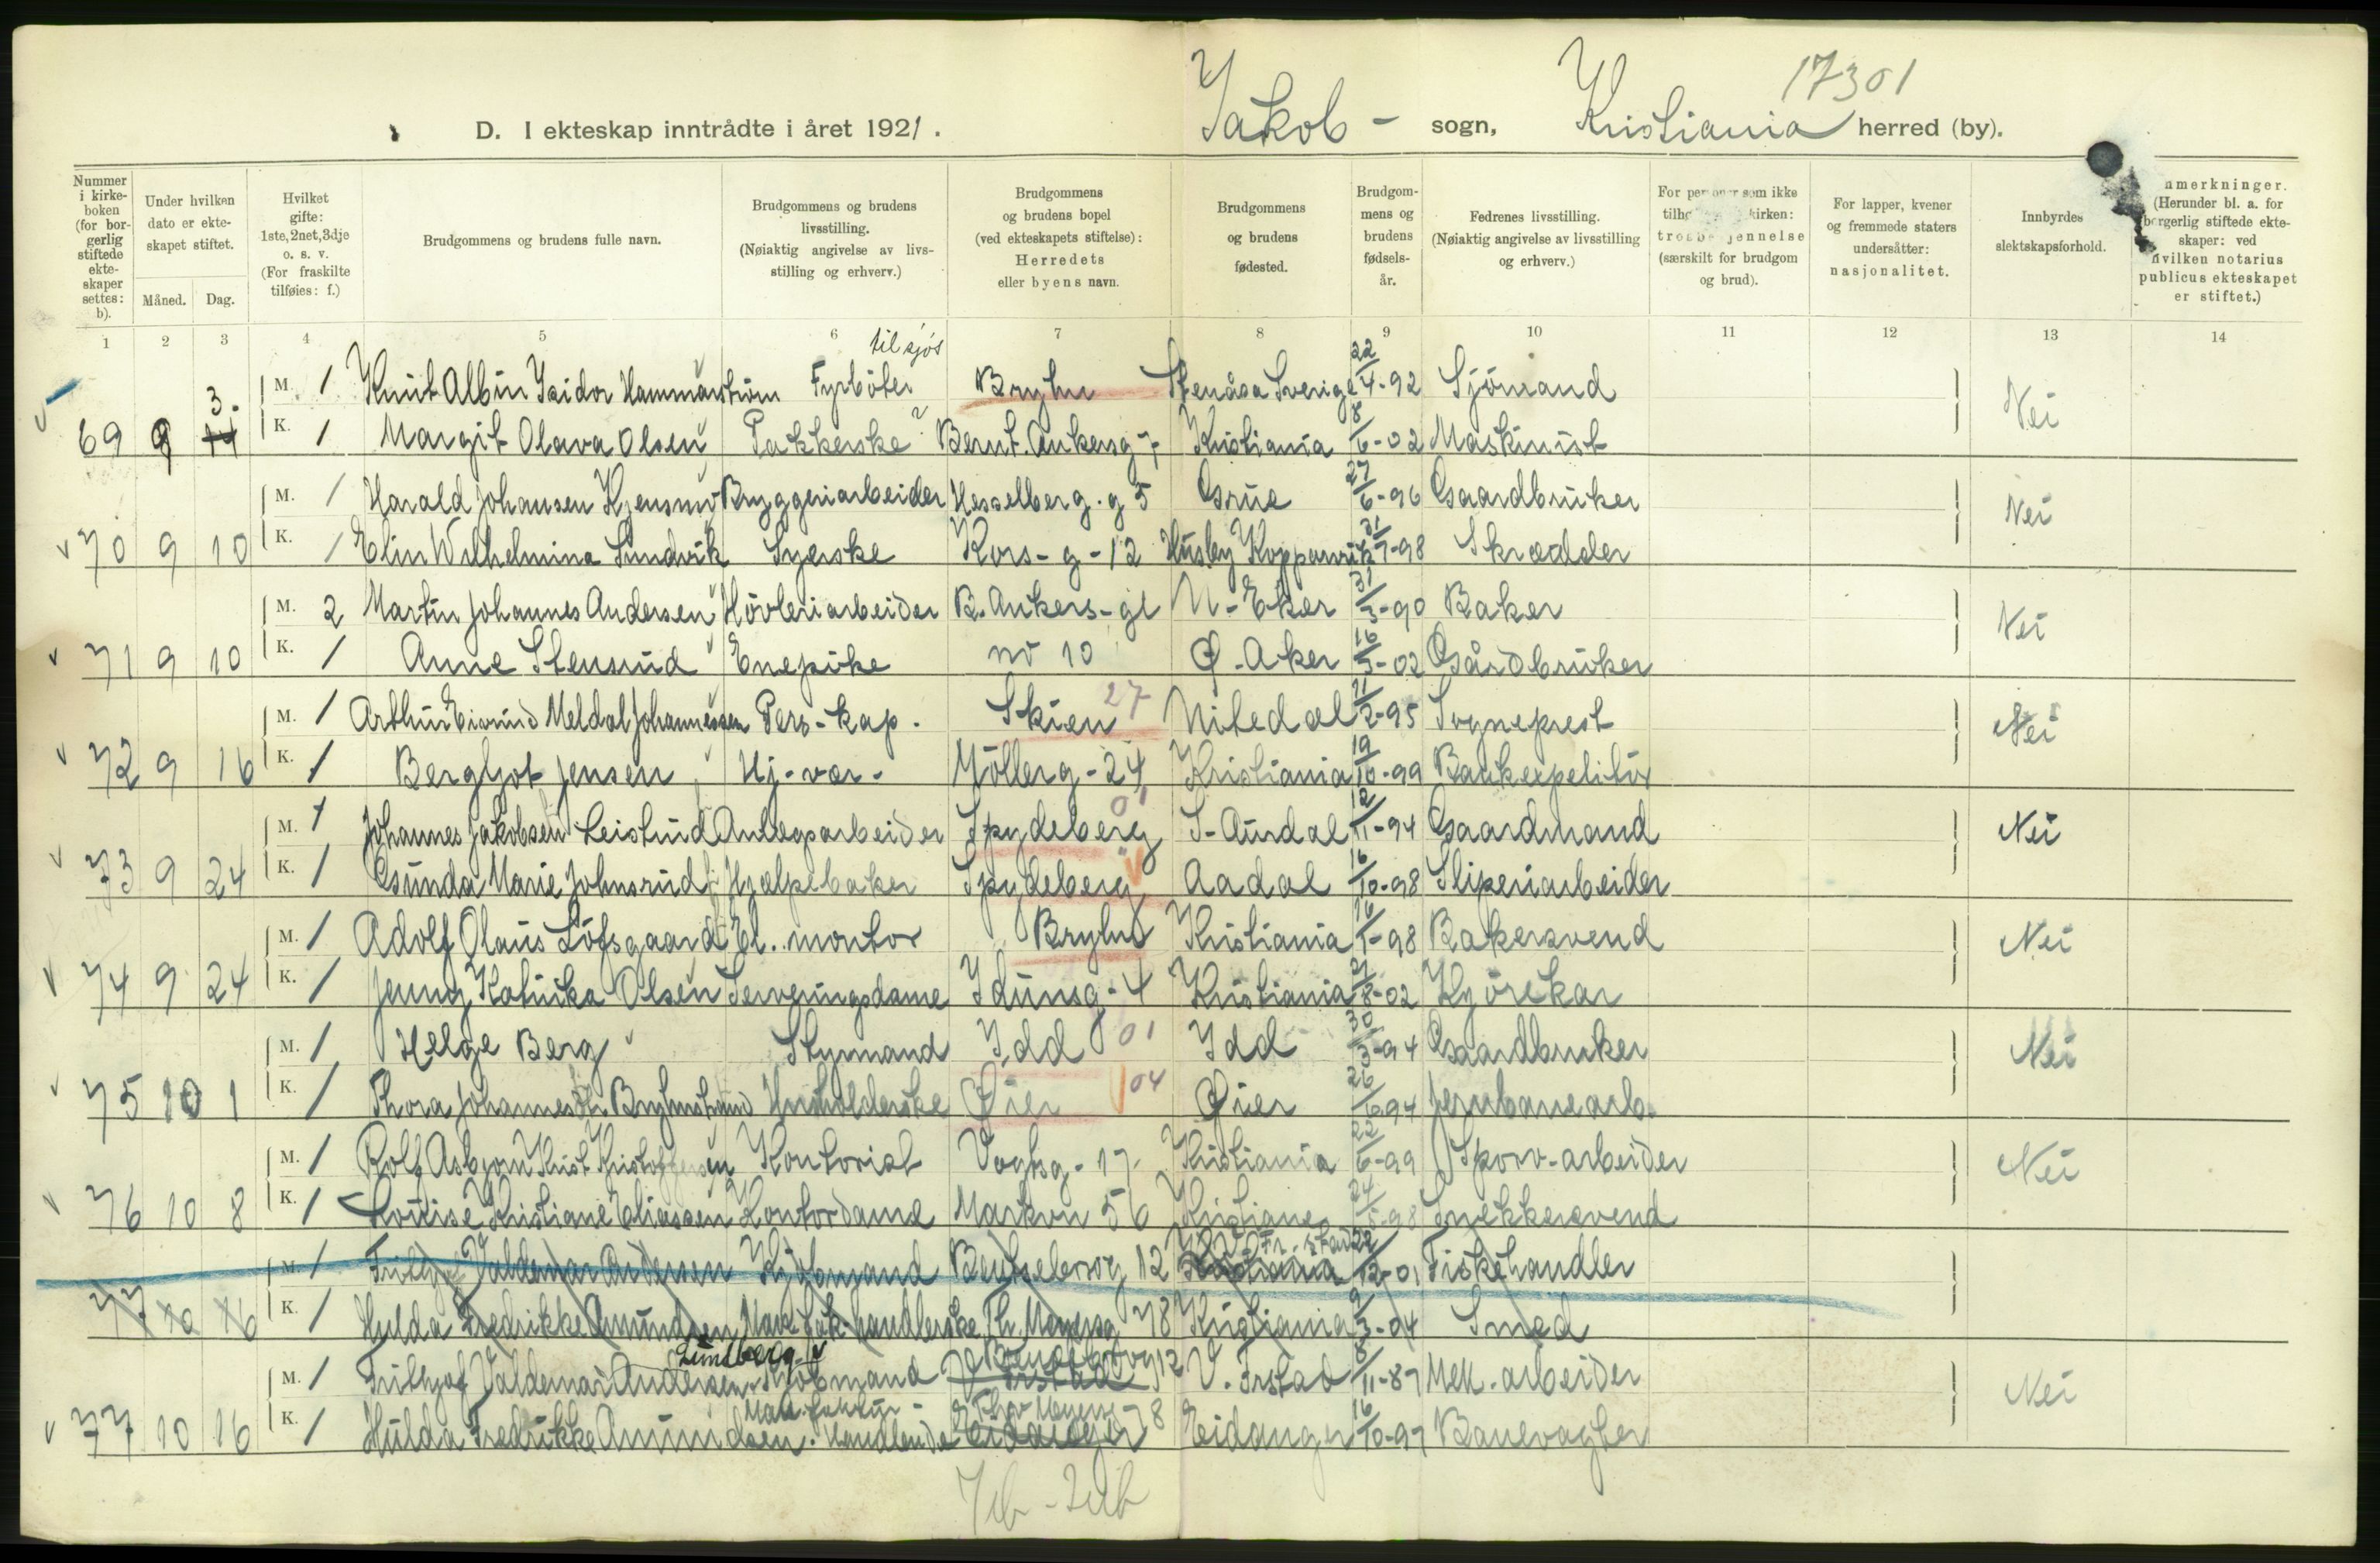 17301
D. I ekteskap inntrådte i året 1921. Jakob - sogn, Kristiania herred (by).
Nummer i kirkeboken (for borgerlig stiftede ekteskaper settes: b).
Under hvilken dato er ekteskapet stiftet.
Måned. Dag.
Hvilket gifte: 1ste, 2net, 3dje o. s. v. (For fraskilte tilføies: f.)
Brudgommens og brudens fulle navn.
Brudgommens og brudens livsstilling. (Nøiaktig angivelse av livsstilling og erhverv.)
Brudgommens og brudens bopel (ved ekteskapets stiftelse): Herredets eller byens navn.
Brudgommens og brudens fødested.
Brudgommens og brudens fødselsår.
Fedrenes livsstilling. (Nøiaktig angivelse av livsstilling og erhverv.)
For personer som ikke kirken: (særskilt for brudgom og brud).
For lapper, kvener og fremmede staters undersåtter: nasjonalitet.
Innbyrdes slektskapsforhold.
(Herunder bl. a. for borgerlig stiftede ekteskaper: ved hvilken notarius publicus ekteskapet er stiftet.)
1 2 3 4 5 6 7 8 9 10 11 12 13 14
til sjøs
M. 1 Knut Albin Isidor Hammarström Fyrbøter Bryhn Stenåsa Sverige 22/4-92 Sjömand Nei
69 9 3. K. 1 Margit Olava Olsen Pakkerske Bernt. Ankersg 7 Kristiania 8/6-02 Maskinist
M. 1 Harald Johansen Bryggeriarbeider Hesselberg.g 5 Grue 27/6-96 Gaardbruker Nei
70 9 10 K. 1 Elin Wilhelmina Sundvik Syerske Kors-g-12 Husby 31/7-98 Skrædder
M. 2 Martin Johannes Andersen Høvleriarbeider B. Ankers-gt N-Eker 31/3-90 Baker Nei
71 9 10 K. 1 Anne Stensrud Enepike no 10 Ø-Aker 16/5-02 Gårdbruker
M. 1 Arthur Eivind Meldal Johannessen Pers-kap. Skien 27 Nitedal 11/2-95 Sogneprest Nei
72 9 16 K. 1 Bergljot Jensen Hj-vær- Möllerg-24 Kristiania 19/10-99 Bankexpeditör
M. 1 Johannes Jakobsen Leistud Anlegsarbeider Spydeberg 01 S-Aurdal 12/11-94 Gaardmand Nei
73 9 24 K. 1 Gunda Marie Johnsrud Hjælpebaker Spydeberg Aadal 16/10-98 Sliperiarbeider
M. 1 Adolf Olaus Löfsgaard El. montør Bryhn Kristiania 16/1-98 Bakersvend Nei
74 9 24 K. 1 Jenny Katinka Olsen Serveringsdame Idunsg-4 Kristiania 21/8-02 Kjörekar
M. 1 Helge Berg Styrmand Idd 01 Idd 30/3-94 Gaardbruker Nei
75 10 1 K. 1 Thora Johannesdtr Husholderske Øier 04 Øier 26/6-94 Jernbanearb.
M. 1 Rolf Asbjørn Krist Kristoffersen Kontorist Vogtsg-17 Kristiania 22/6-99 Sporv-arbeider Nei
76 10 8 K. 1 Louise Kristiane Eliassen Kontordame Markvn 56 Kristiania 24/5-98 Snekkersvend
M. 1 Frithjof Valdemar Andersen Kjøbmand Bentsebrog 12 Kristiania Fr. stad 22/12-01 Fiskehandler
77 10 16 K. 1 Hulda Fredrikke Amundsen Man-fak-handlerske Th. Meyersg 78 Kristiania 9/3-04 Smed
Lundberg
M. 1 Frithjof Valdemar Andersen Kjøbmand 12 V. Frstad 8/11-87 Mek. arbeider Nei
77 10 16 K. 1 Hulda Fredrikke Amundsen. Manufaktur-handlende Thv Meyersg 78 Eidanger 16/10-97 Banevagter